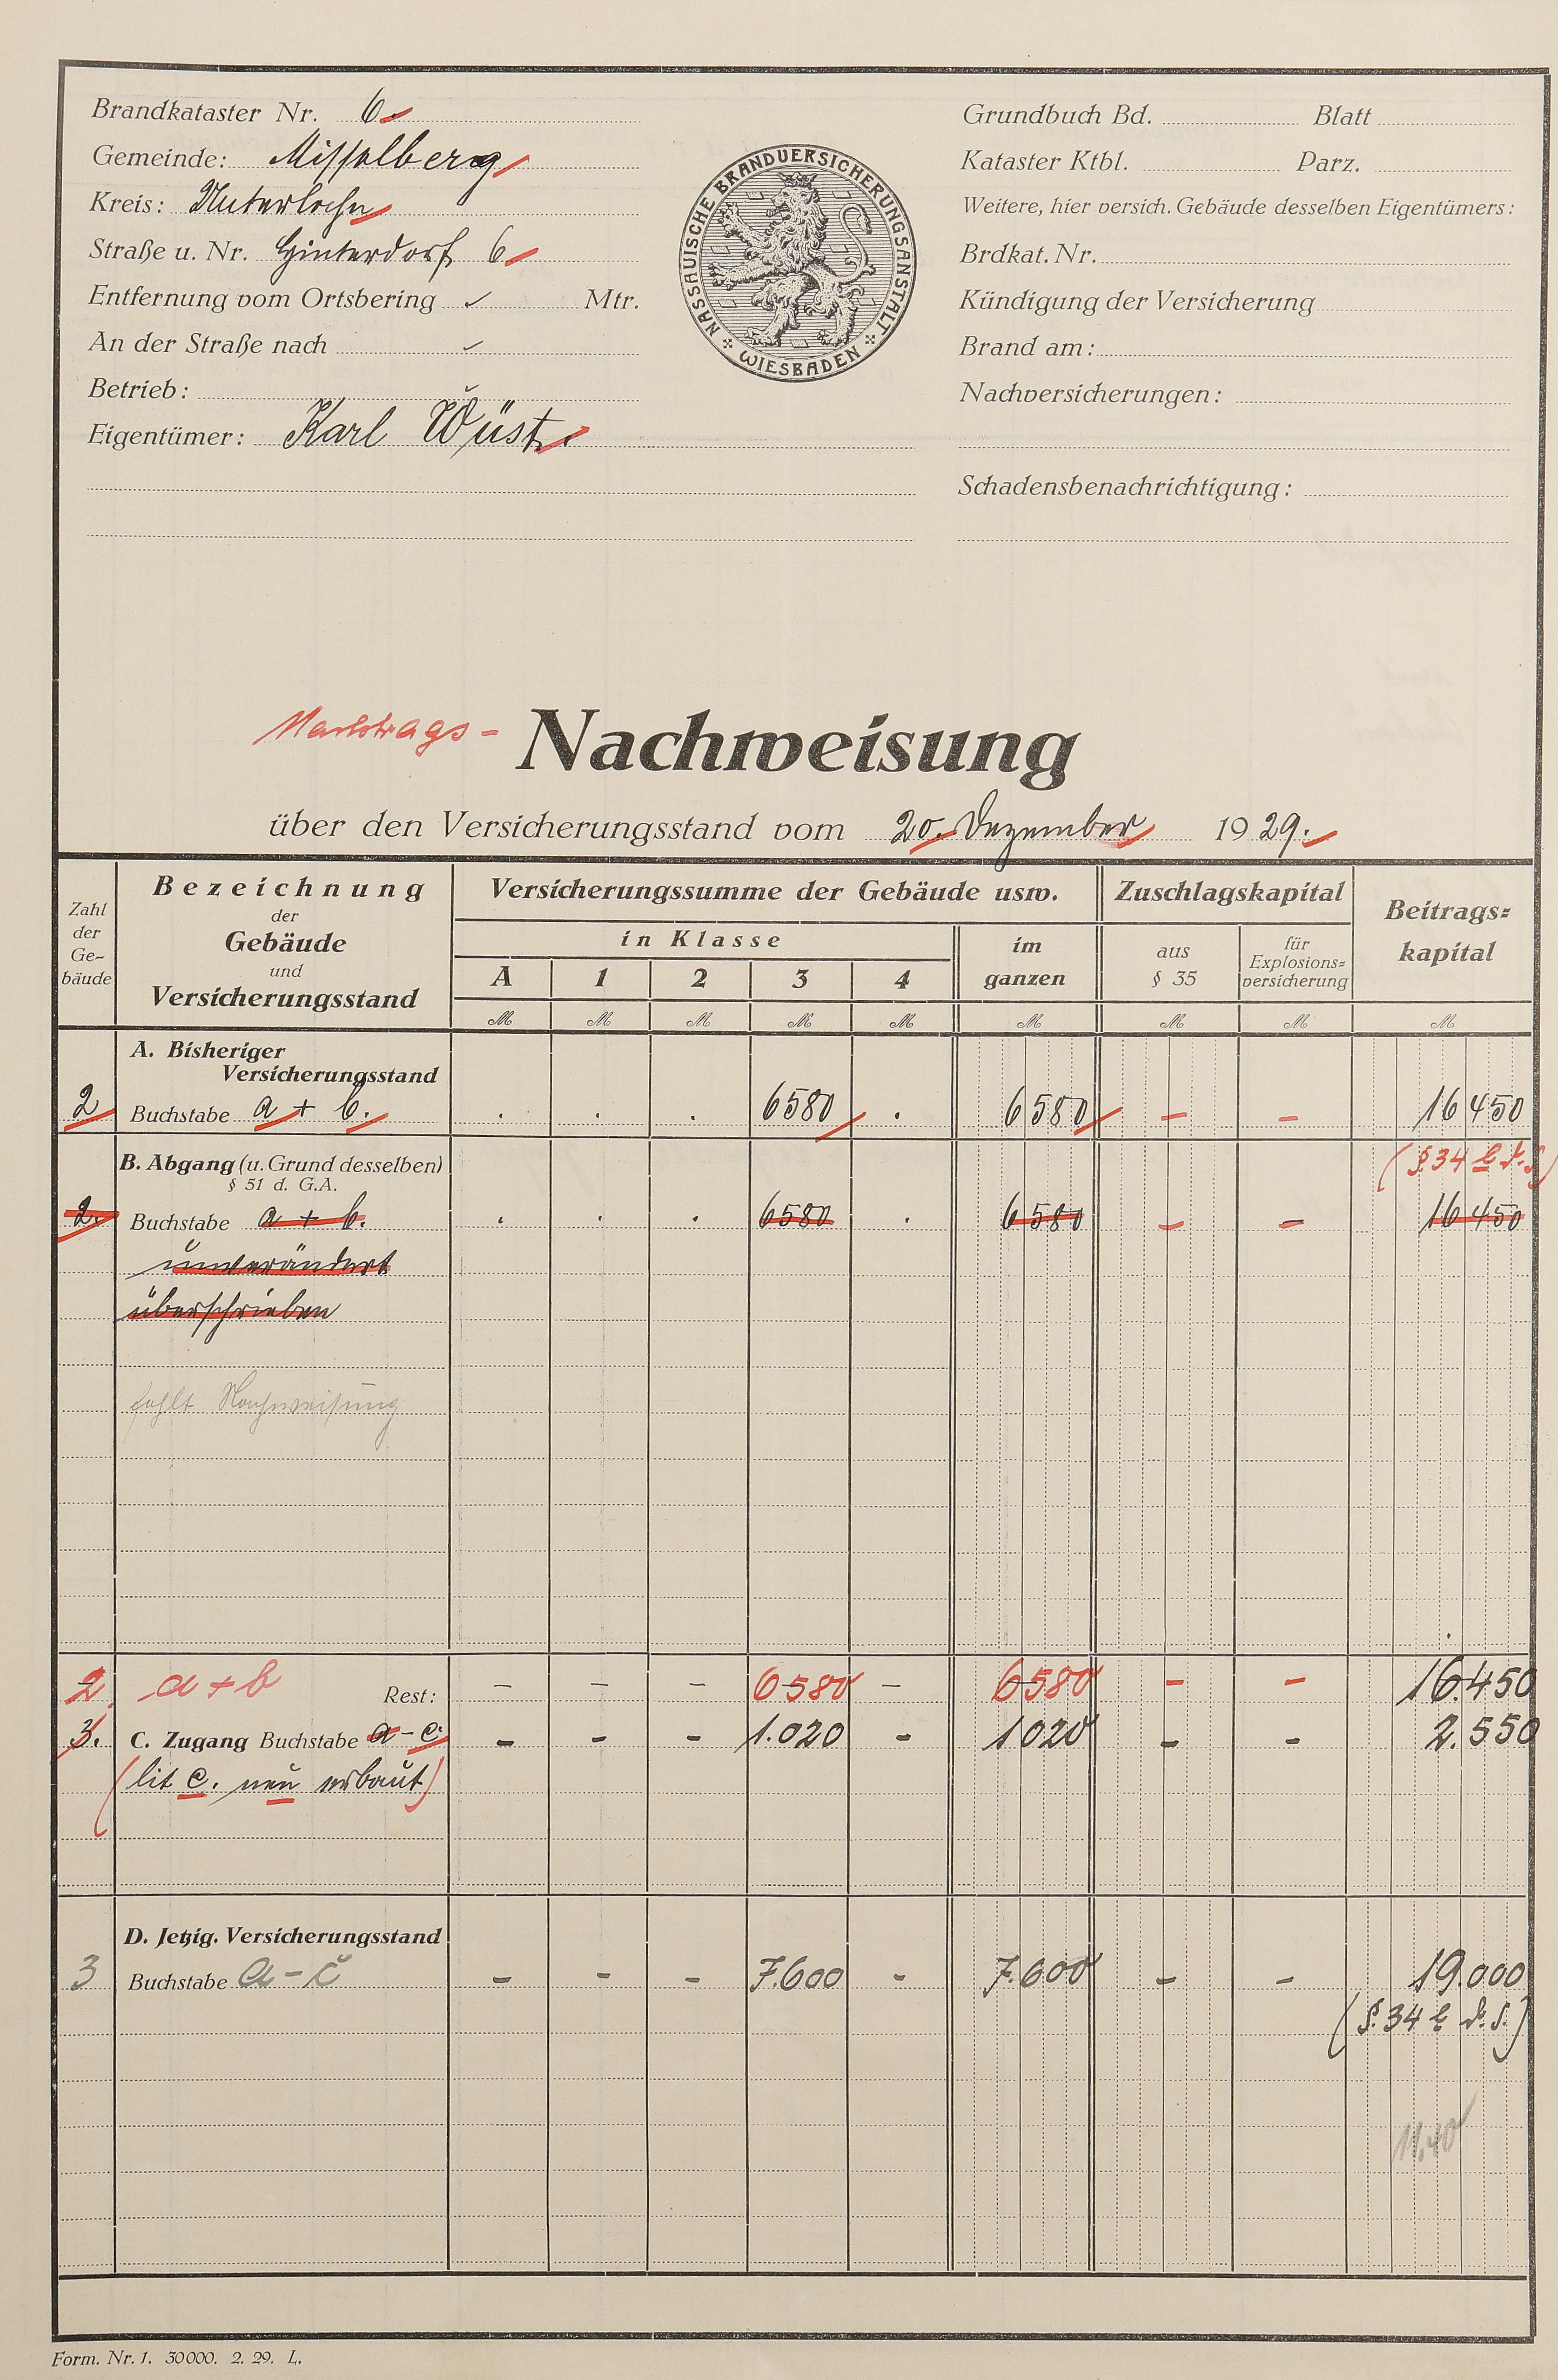 Brandkataster Nr. 6.
Gemeinde: Misselberg
Kreis: Unterlahn
Straße u. Nr. Hinterdorf 6
Entfernung vom Ortsbering Mtr.
An der Straße nach
Betrieb:
Eigentümer: Karl Wüst.
NASSAUISCHE BRANDVERSICHERUNGSANSTALT
WIESBADEN
Grundbuch Bd. Blatt
Kataster Ktbl. Parz.
Weitere, hier versich. Gebäude desselben Eigentümers:
Brdkat. Nr.
Kündigung der Versicherung
Brand am:
Nachversicherungen:
Schadensbenachrichtigung:
Nachtrags- Nachweisung
über den Versicherungsstand vom 20. Dezember 1929.
Zahl der Ge- bäude
Bezeichnung
der
Gebäude
und
Versicherungsstand
Versicherungssumme der Gebäude usw.
in Klasse
A 1 2 3 4
im ganzen
Zuschlagskapital
aus § 35
für Explosions- versicherung
Beitrags- kapital
M M M M M M M M M
A. Bisheriger
Versicherungsstand
2 Buchstabe a + b. . . . 6580 . 6580 - - 16450
B. Abgang (u. Grund desselben) (§ 34 b d. S.)
§ 51 d. G.A.
2. Buchstabe a + b. . . . 6580 . 6580 - - 16450
unverändert
überschrieben
fehlt Nachweisung
2. a + b Rest: - - - 6580 - 6580 - - 16.450
3. C. Zugang Buchstabe a - c. - - - 1.020 - 1020 - - 2.550
(lit c. neu erbaut)
D. Jetzig. Versicherungsstand
3 Buchstabe a - c - - - 7.600 - 7.600 - - 19.000
(§. 34 b d. S.)
11.40
Form. Nr. 1. 30000. 2. 29. L.